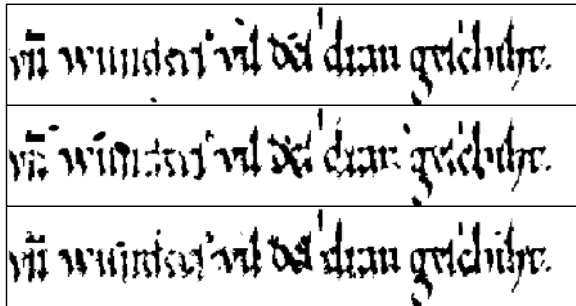 vñ wunders vil des dran geschiht.
vñ wunders vil des dran geschiht.
vñ wunders vil des dran geschiht.